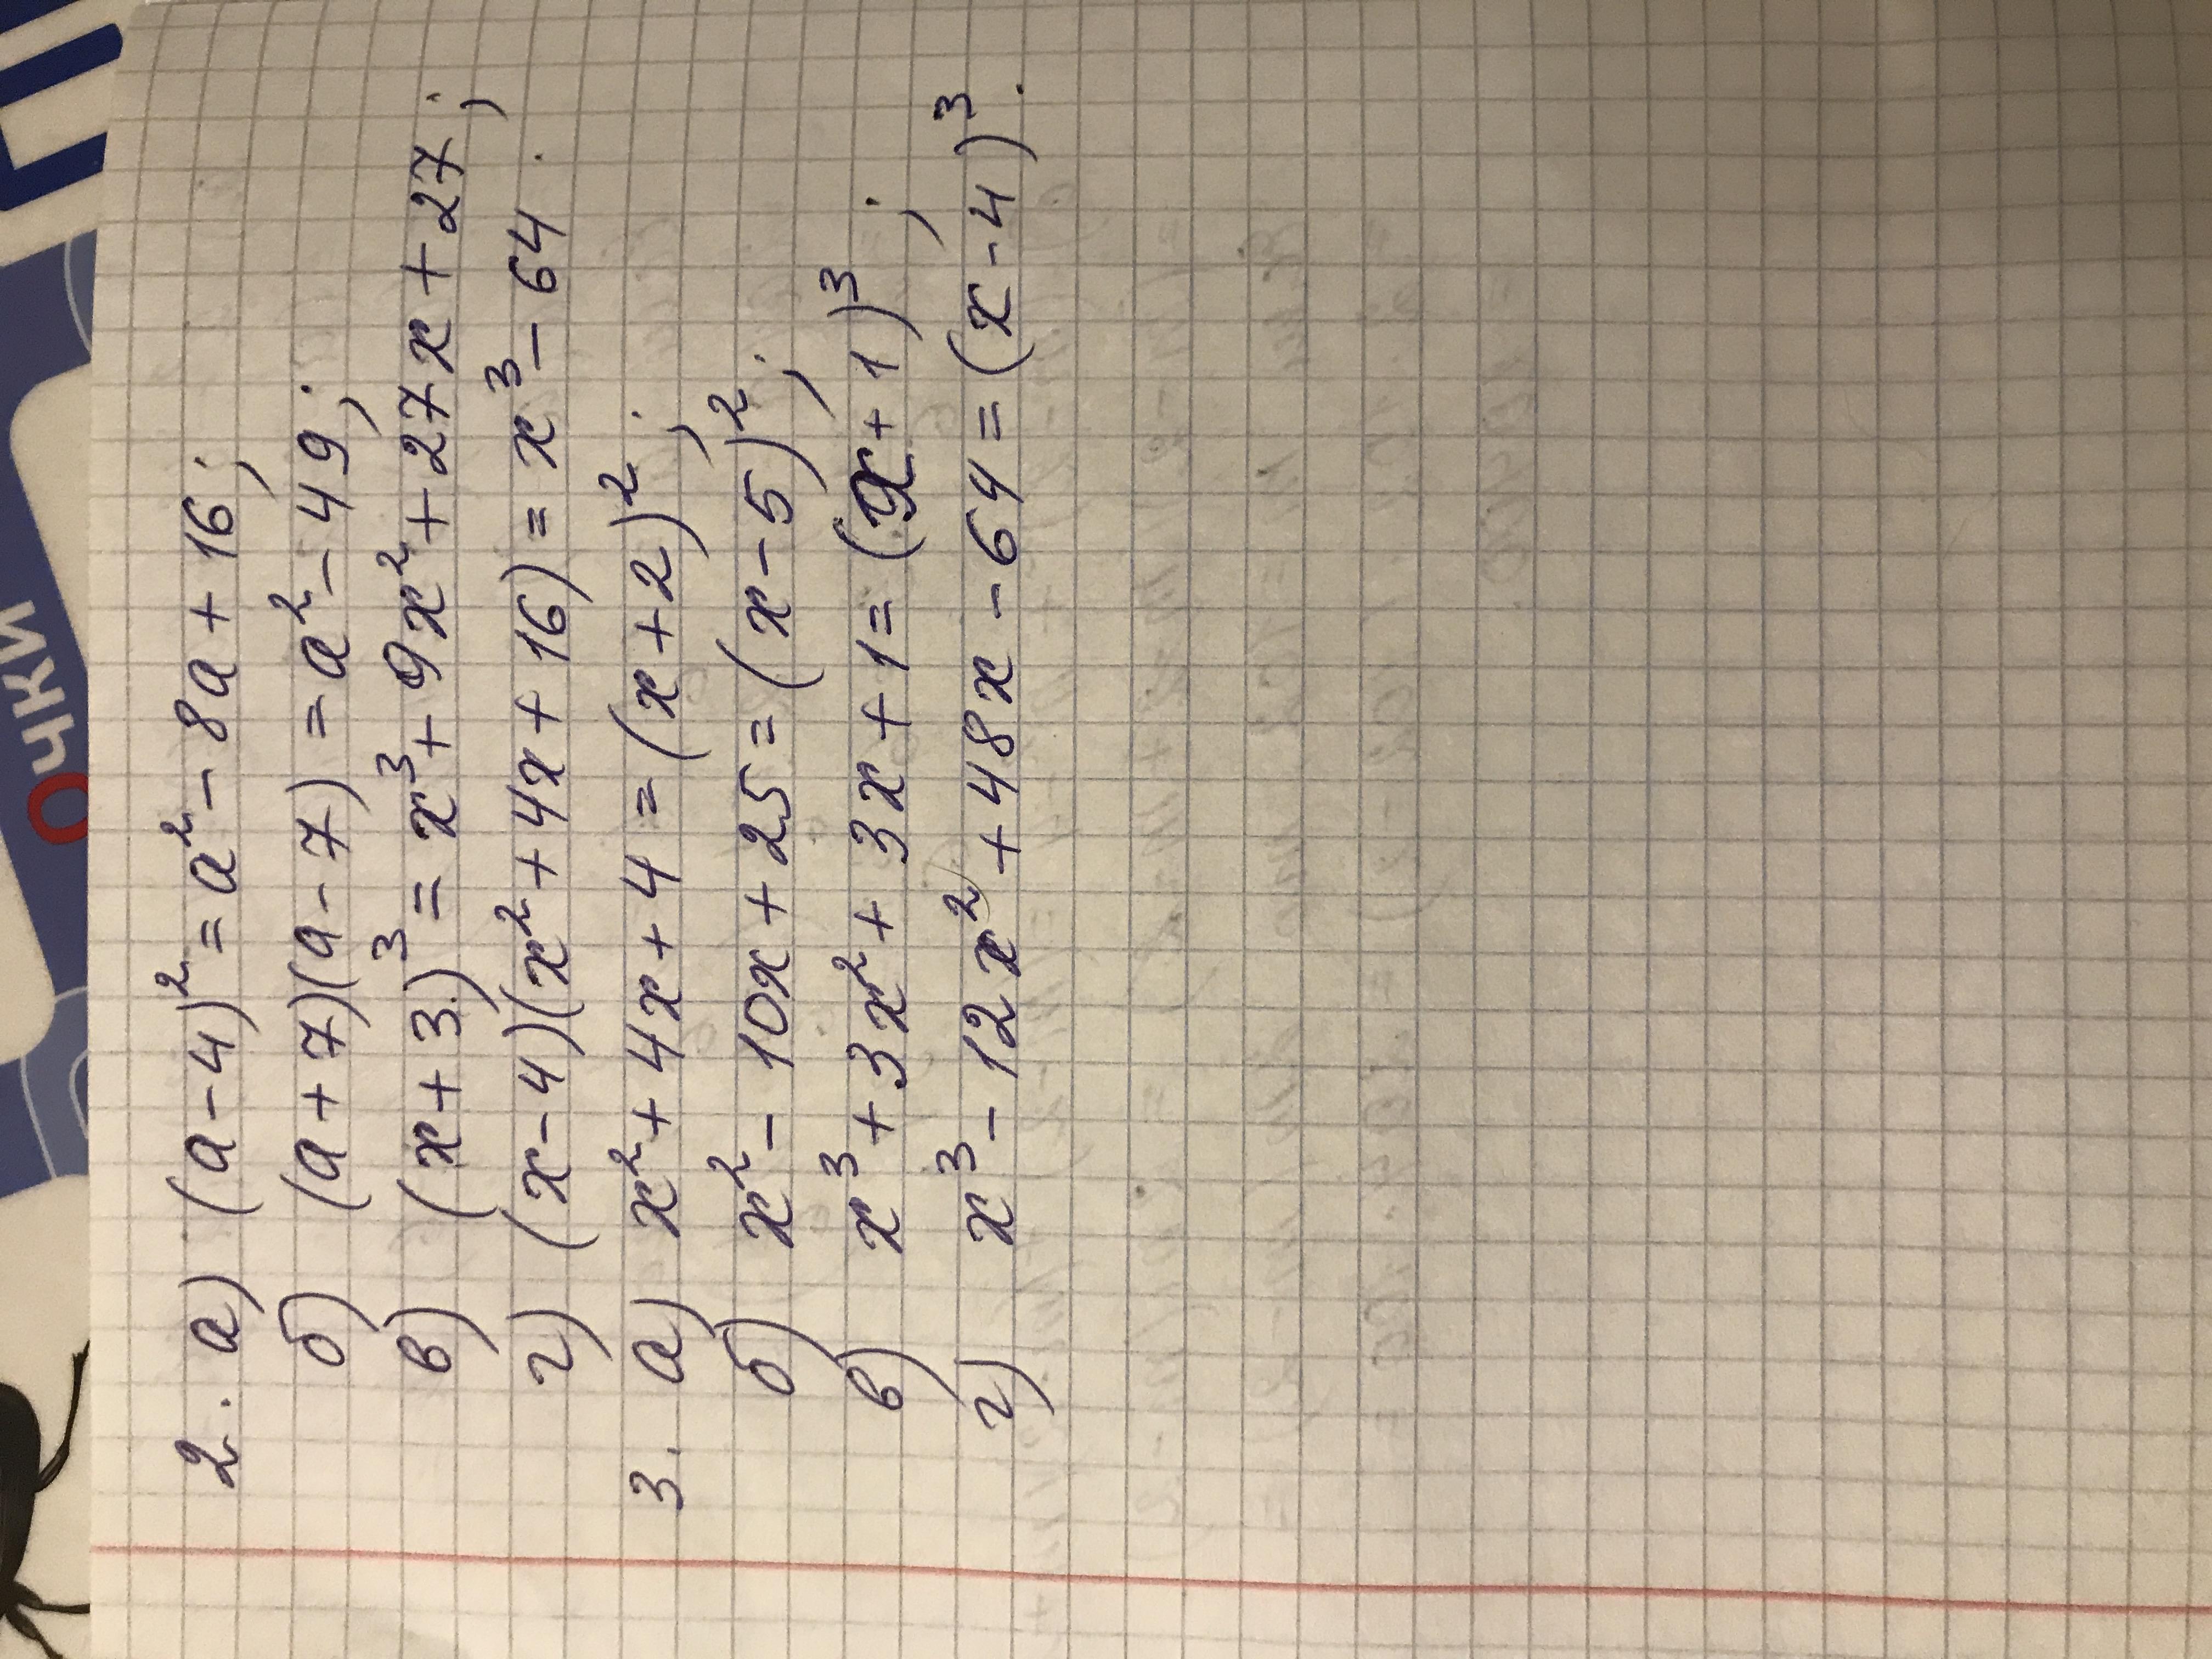 2. а) (a-4)² = a² - 8a + 16;
б) (a+7)(a-7) = a² - 49;
в) (x+3)³ = x³ + 9x² + 27x + 27;
г) (x-4)(x² + 4x + 16) = x³ - 64.
3. а) x² + 4x + 4 = (x+2)²;
б) x² - 10x + 25 = (x-5)²;
в) x³ + 3x² + 3x + 1 = (x+1)³;
г) x³ - 12x² + 48x - 64 = (x-4)³.
Очки